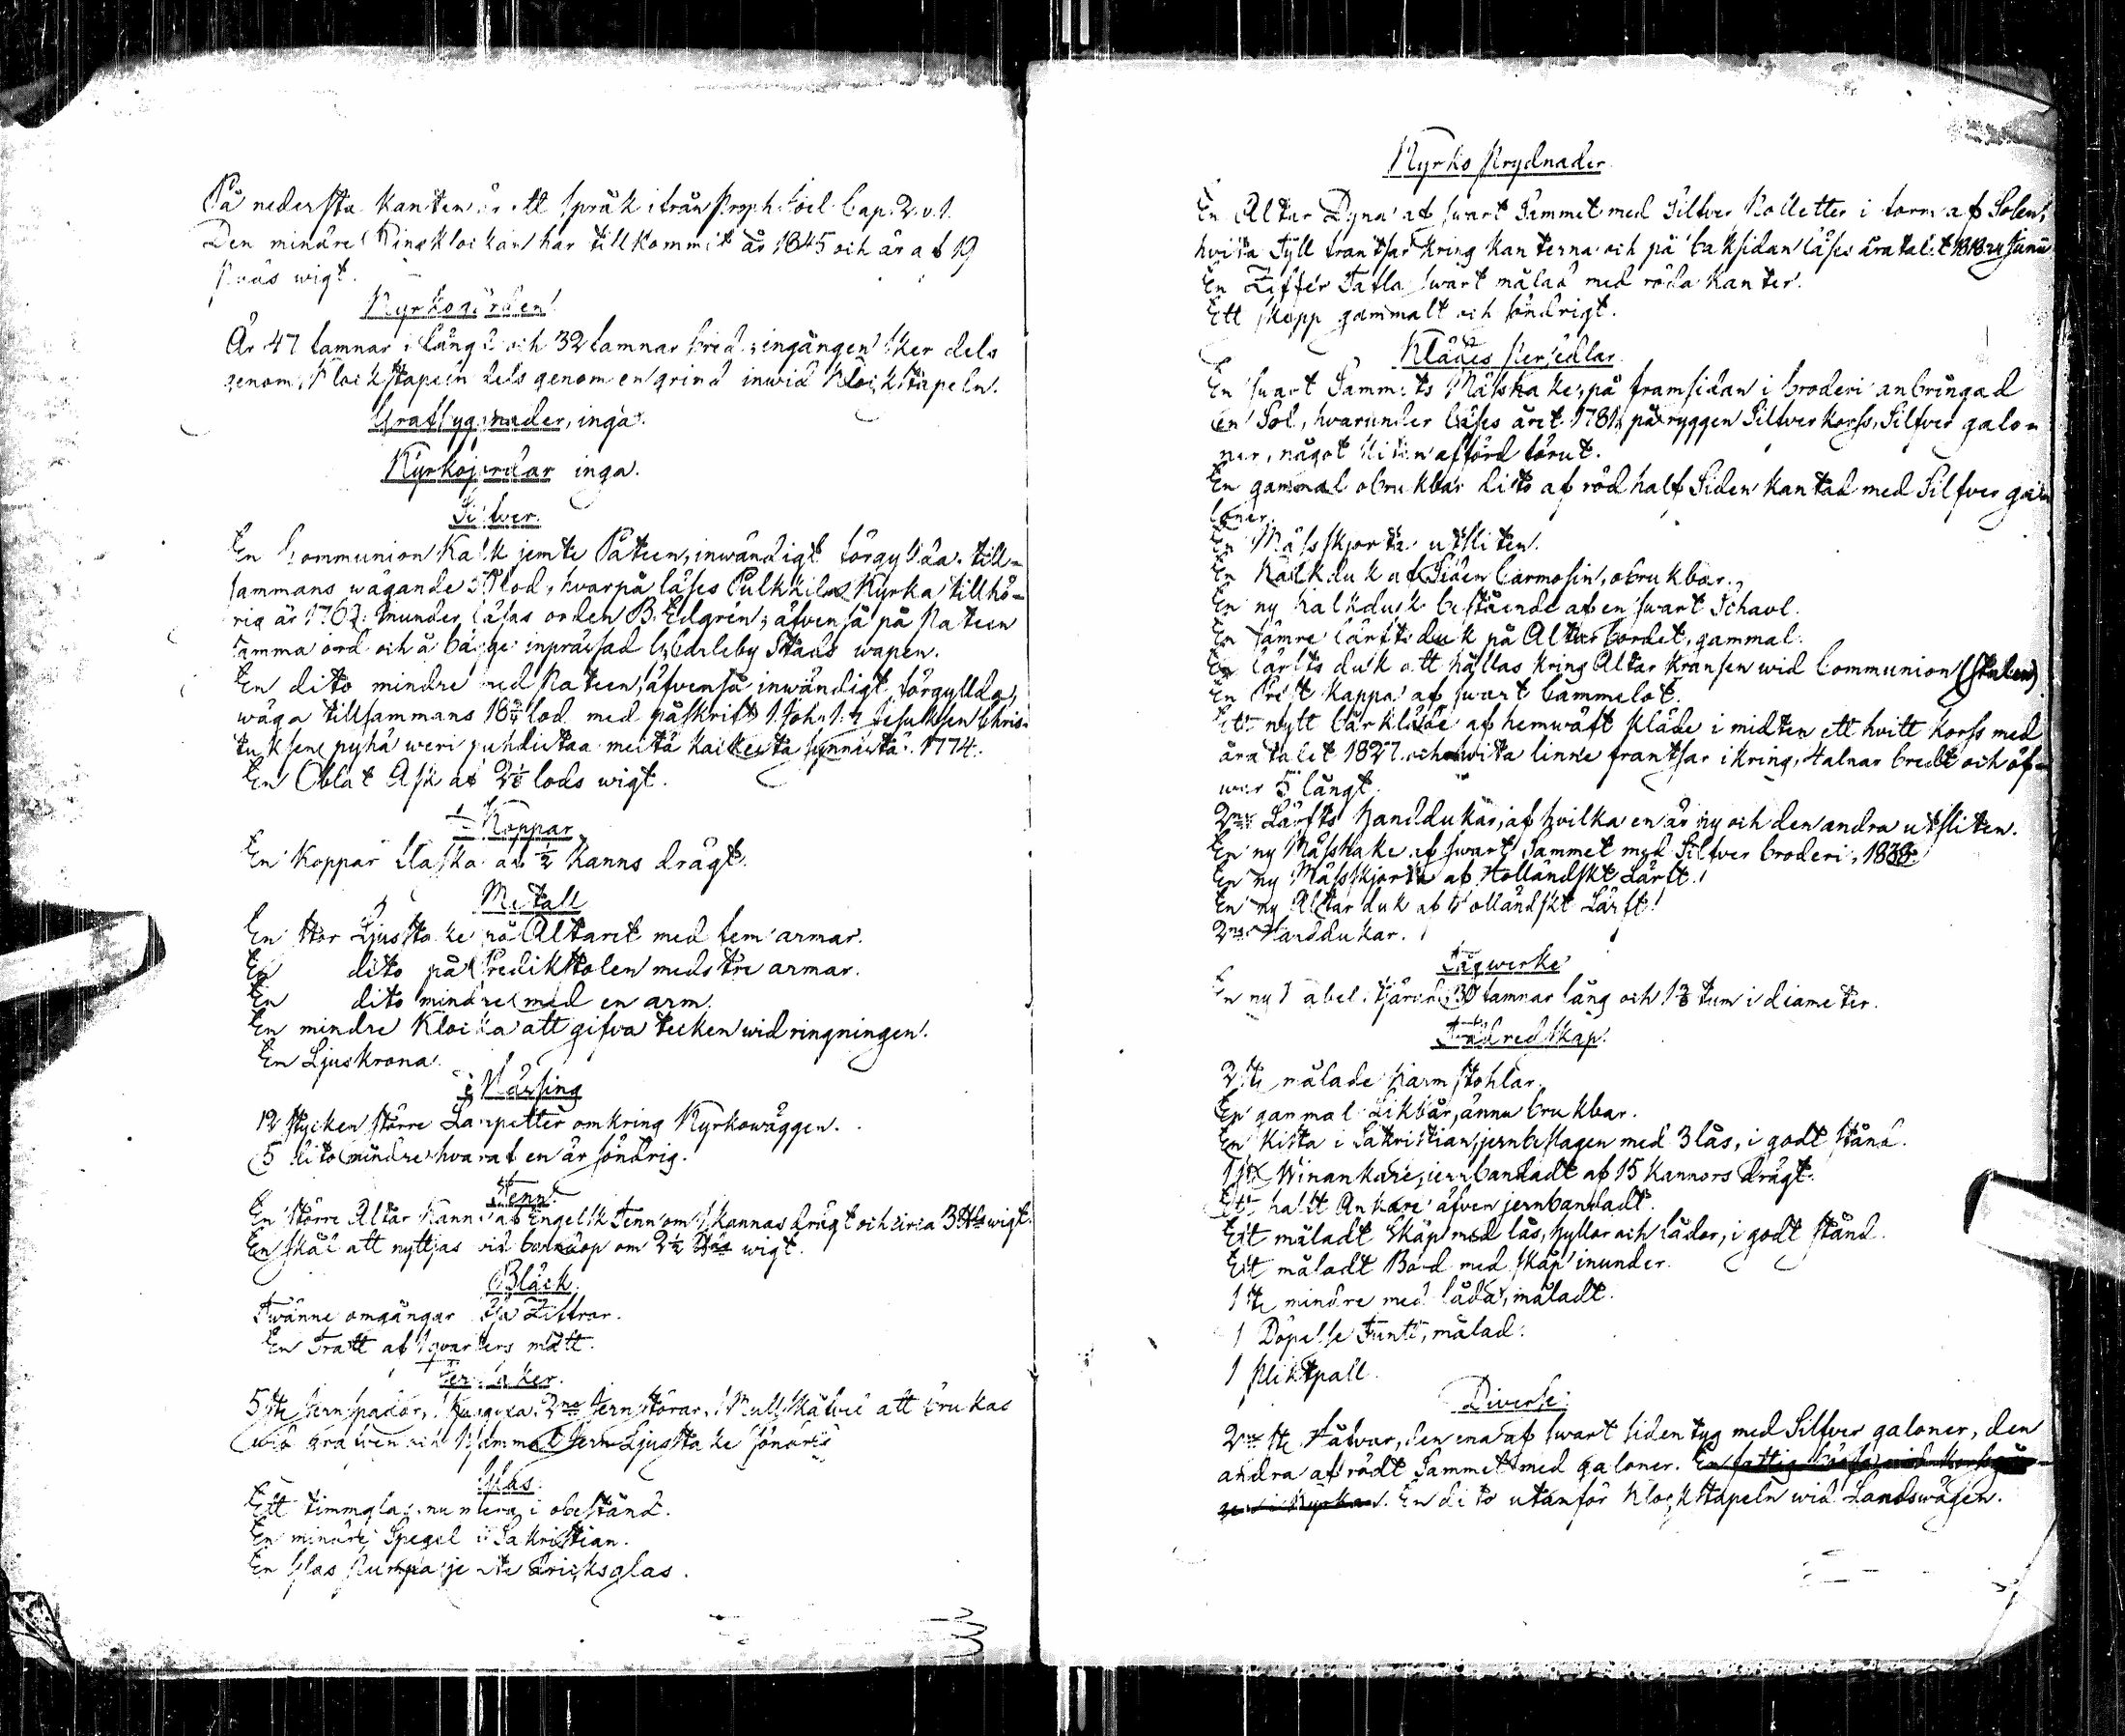 På nedersta kanten är ett språk ifrån Proph. Joel Cap. 2. v. 1.
Den mindre Ringklockan har tillkommit år 1845 och är af 19
wigt.
Kyrkogården
Är 47 famnar i längd och 32 famnar bred; ingången sker dels
genom Klockstapeln dels genom en grind inwid Klockstapeln.
Grafbyggnader, inga.
Kyrkojordar inga.
Silfver.
En Communion Kalk jemte Pateen, inwändigt förgyllda, till-
sammans wägande lod, hvarpå läses Pulkkila Kyrka tillhö-
rig år 1762. inunder läsas orden B. Edgren; äfvenså på Pateen
samma ord och å bägge inpräßad G. Carleby Stads wapen.
En dito mindre med Pateen, äfvenså inwändigt förgyllda,
wäga tillsammans 18¾ lod med påskrift 1. Joh. 1. 7. Jesuksen Chris-
tuksen pyhä weri puhdistaa meitä kaikesta synnistä. 1774.
En Oblat Ask af 2⅛ lods wigt.
Koppar
En Koppar flaska af ½ Kanns drägt.
Metall
En stor Ljusstake på Altaret med fem armar.
En dito på Predikstolen med tre armar.
En dito mindre med en arm.
En mindre Klocka att gifva tecken wid ringningen.
En Ljuskrona.
Mässing
12 stycken större Lampetter omkring Kyrkowäggen.
5 dito mindre hvaraf en är söndrig.
Tenn.
En större Altar Kanna af Engelsk Tenn om 1 kannas drägt och circa 3 wigt.
En skål att nyttjas vid barndop om 2½ wigt.
Bläck.
Twänne omgångar Ziffror.
En Tratt af 1 qvarters mått.
Jernsaker.
5 st. Jernspador, 2ne Jernstörar, 1 Mullskåfvel att brukas
wid grafwen och 1 gammal Jern Ljusstake söndrig
Glas.
Ett timmglas numera i obestånd.
En mindre Spegel i Sakristian.
En Glas Pumpa jemte Dricksglas.
Kyrko Prydnader.
En Altar Dyna af swart Sammet med Silfver Rosetter i form af Solen,
hvita Tyll frantsar kring kanterna och på baksidan läses åratalet 1818 24 Junii
En Ziffer Tafla swart målad med röda kanter.
Ett skepp gammalt och söndrigt.
Klädes Persedlar.
En swart Sammets Mässhake, på framsidan i broderi anbringad
en Sol, hvarunder läses året 1781, på ryggen Silfver korss, Silfver galo-
ner, något sliten afförd förut.
En gammal obrukbar dito af röd half Siden kantad med Silfver ga-
loner.
En Mässskjorta utsliten.
En Kalkduk af Siden Carmosin, obrukbar.
En ny Kalkduk bestående af en swart Schavl.
En sämre lärftsduk på Altarbordet, gammal.
En lärfts duk att hållas kring Altar Kransen wid Communion (stulen)
En Prest Kappa af swart Cammelot.
Ett nytt bårkläde af hemwäft kläde i midten ett hvitt korss med
åratalet 1827 och hwita linne frantsar ikring, 4 alnar bredt och öf-
wer 5 långt.
2ne Lärfts Handdukar, af hvilka en är ny och den andra utsliten.
En ny Mässhake af swart Sammet med Silfver broderi, 1838
En ny Mässskjorta af Holländskt Lärft.
En ny Altarduk af Holländskt Lärft.
2ne Handdukar.
Tågwerke
En ny Cabel tjärad 30 famnar lång och 1⅜ tum i diameter.
Träd redskap.
2 st. målade Karmstohlar.
En gammal Likbår, ännu brukbar.
En Kista i Sakristian, jernbeslagen med 3 lås, i godt stånd.
1 st. Winankare, jernbandadt af 15 Kannors drägt.
Ett halft Ankare äfven jernbandadt.
Ett måladt Skåp med lås, hyllor och lådor, i godt stånd.
Ett måladt Bord med skåp inunder.
1 st. mindre med låda, måladt.
1 Döpelse Funt, målad.
1 Pliktpall.
Diverse.
2ne st. Håfvar, den ena af swart sidentyg med Silfver galoner, den
andra af rödt Sammet med galoner. En fattig bössa
i Kyrkan. En dito utanför Klockstapeln wid Landswägen.